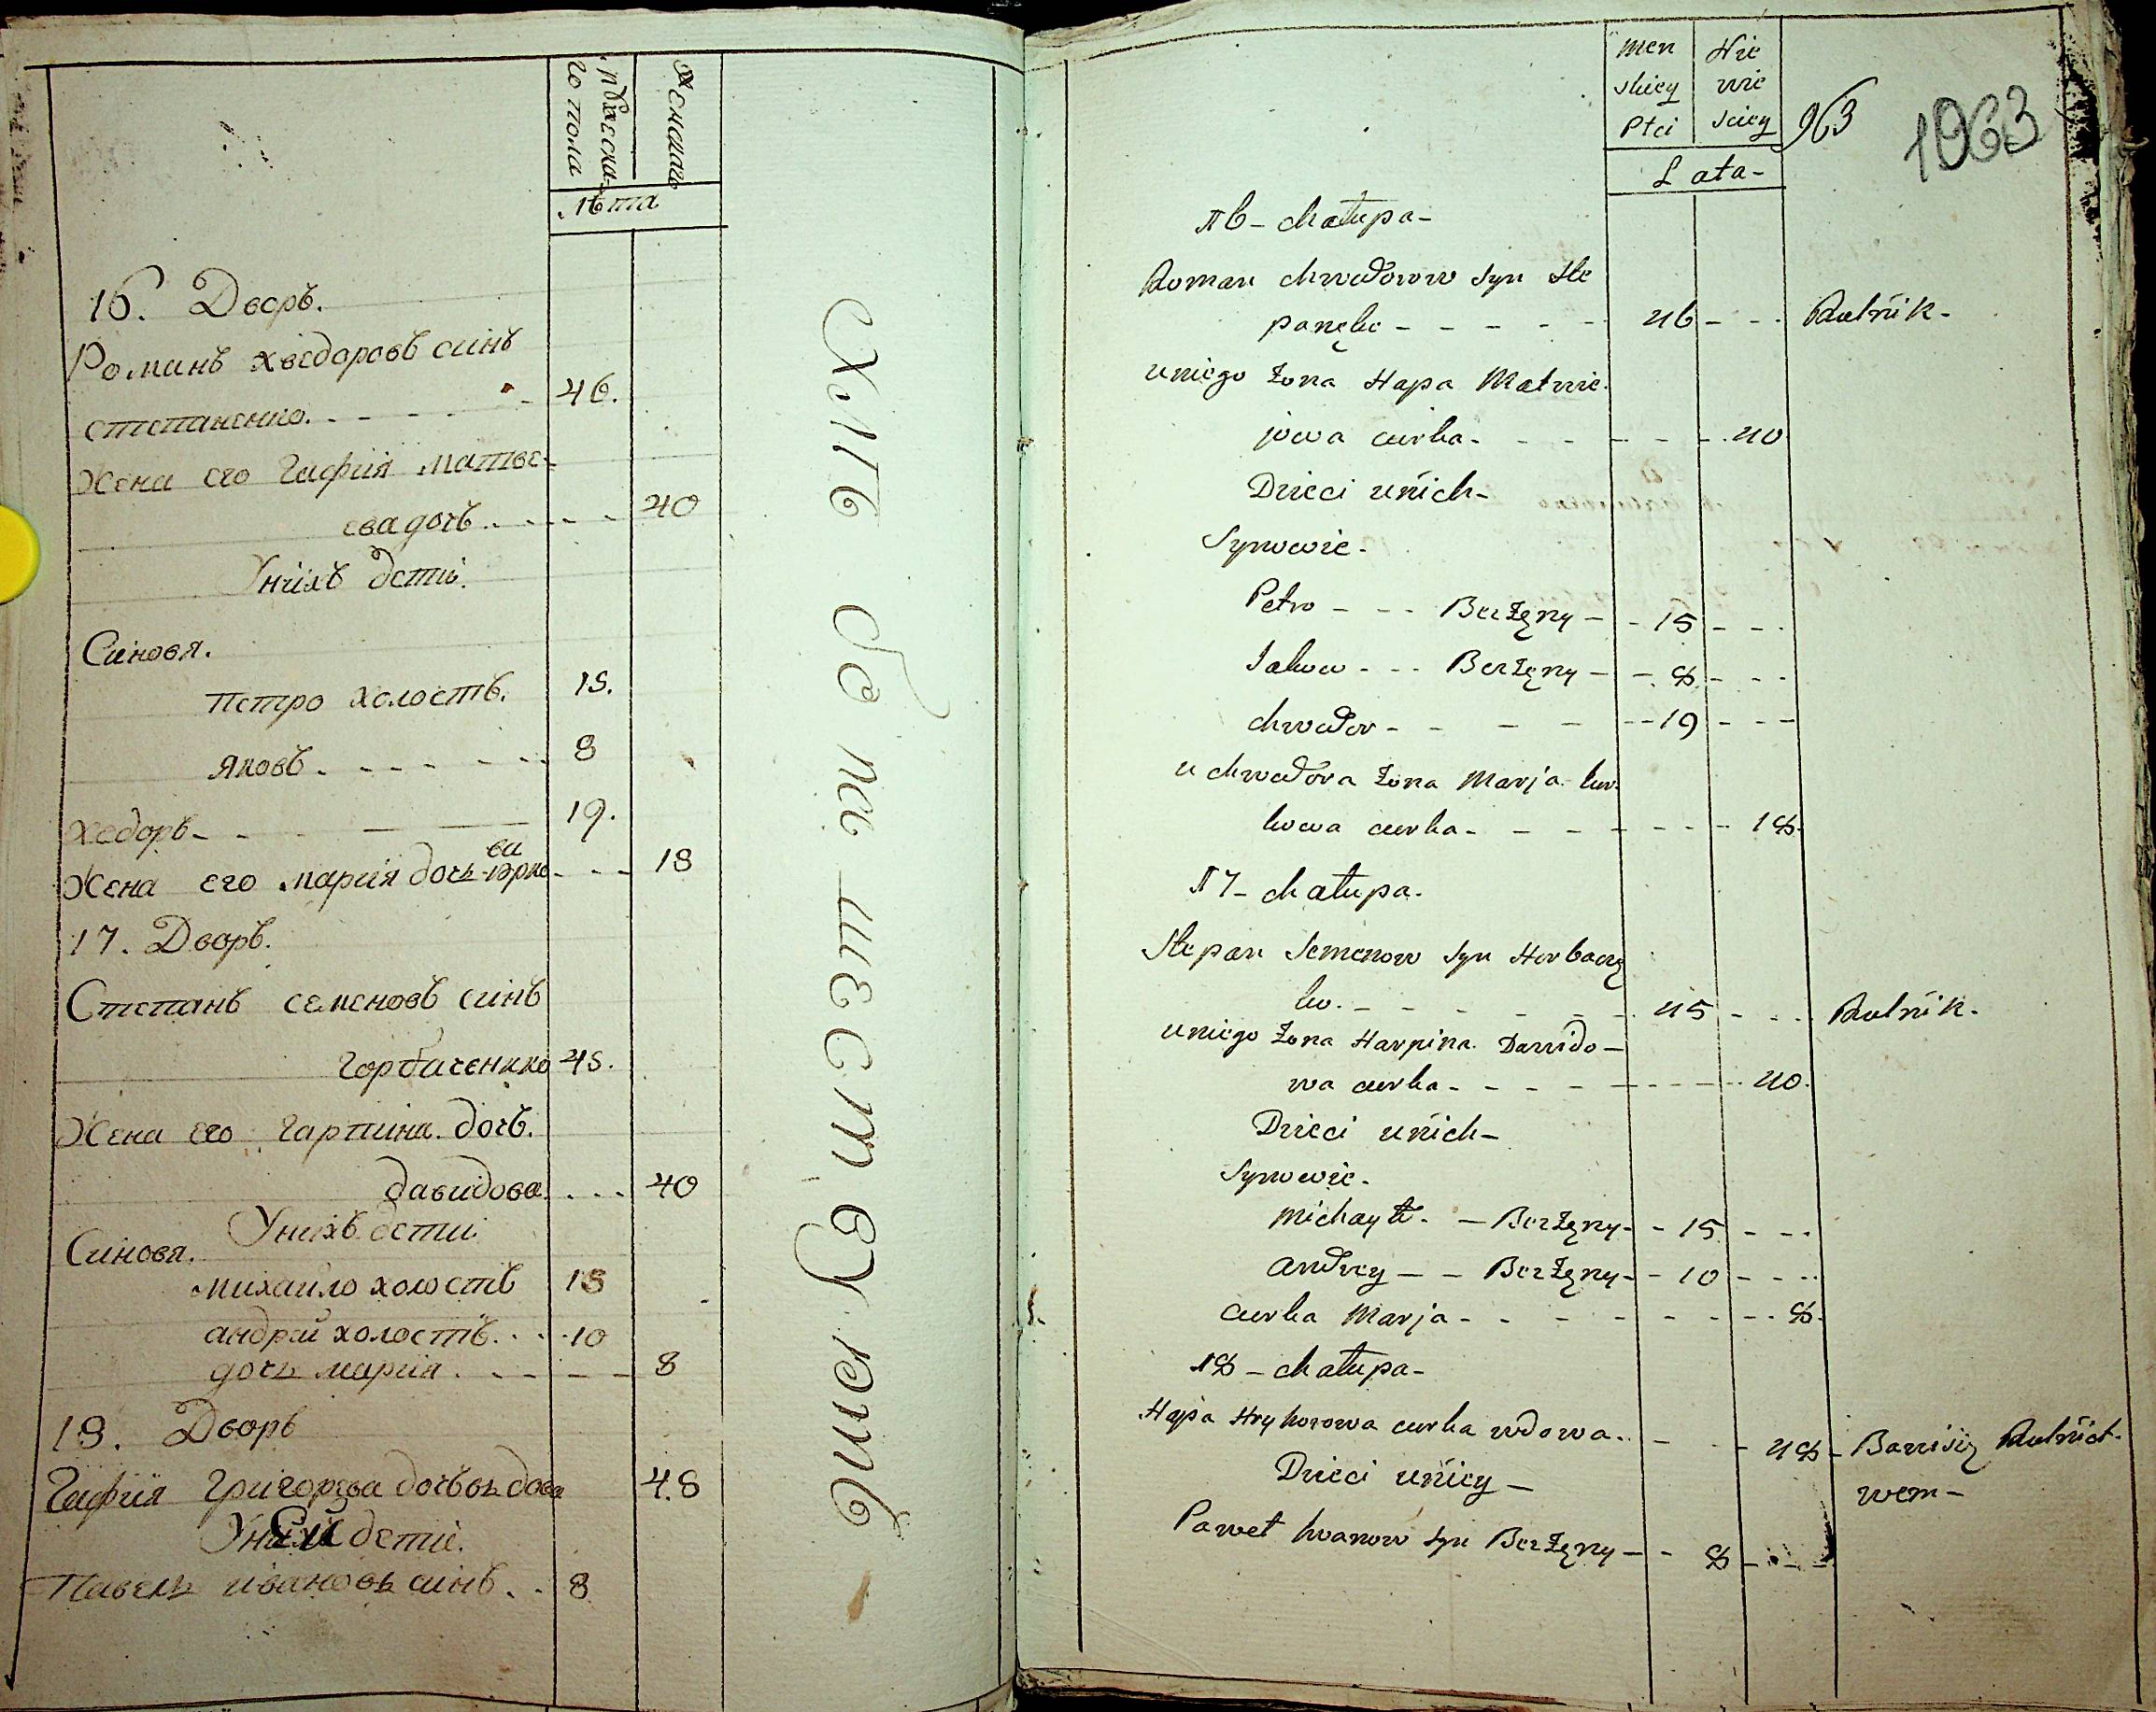 мужеска-
го пола
женскаго
лѣта
16. Дворъ.
Романъ хведоровъ синъ
степаненко. - - - - 46.
Жена его Гафия матве-
ева дочъ . . - - - 40
Унихъ дети.
Синовя.
петро холостъ. 15.
яковъ. - - - - - - 8
хедоръ - - - 19.
Жена его мария дочь юрко ва - - - 18
17. Дворъ.
Степанъ семеновъ синъ
горбаченкко 45.
Жена его гарпина дочъ.
давидова. . . . 40
Унихъ дети
Синовя.
михаило холостъ 15
андрий холостъ. . . 10
дочь мария. - - - - 8
18. Дворъ
Гафия григорева дочъ вьдова 48
Уней дети.
Павелъ ивановъ синъ. . 8
men
skiey
Płci
Nie
wie
sciey
Lata -
963
1063
16 - Chałupa -
Roman Chwedorow Syn Ste
panęko - - - - - 46 - - - Rolnik -
uniego Żona Hapa Matwie
jowa curka - - - - - - 40
Dzieci unich -
Synowie -
Petro - - - Bezżęny - - 15 - - -
Jakow - - - Bezżęny - - 8 - - -
Chwedor - - - - - - 19 - - -
u Chwedora Żona Marja Iur
kowa curka - - - - - - - 18.
17 - Chałupa -
Stepan Semenow Syn Horbaczę
ko. - - - - - - 45 - - - Rolnik -
uniego Żona Harpina Dawido -
wa curka - - - - - - - 40.
Dzieci unich -
Synowie -
Michayło - - Bezżęny - - 15 - - -
Andrey - - Bezżęny - - 10 - - -
Curka Marja - - - - - - - 8.
18 - Chałupa -
Hapa Hryhorowa curka wdowa. - - - 48 - Bawisię Rolnict-
wem -
Dzieci uniey -
Paweł Iwanow Syn Bezżęny - - 8 - - -